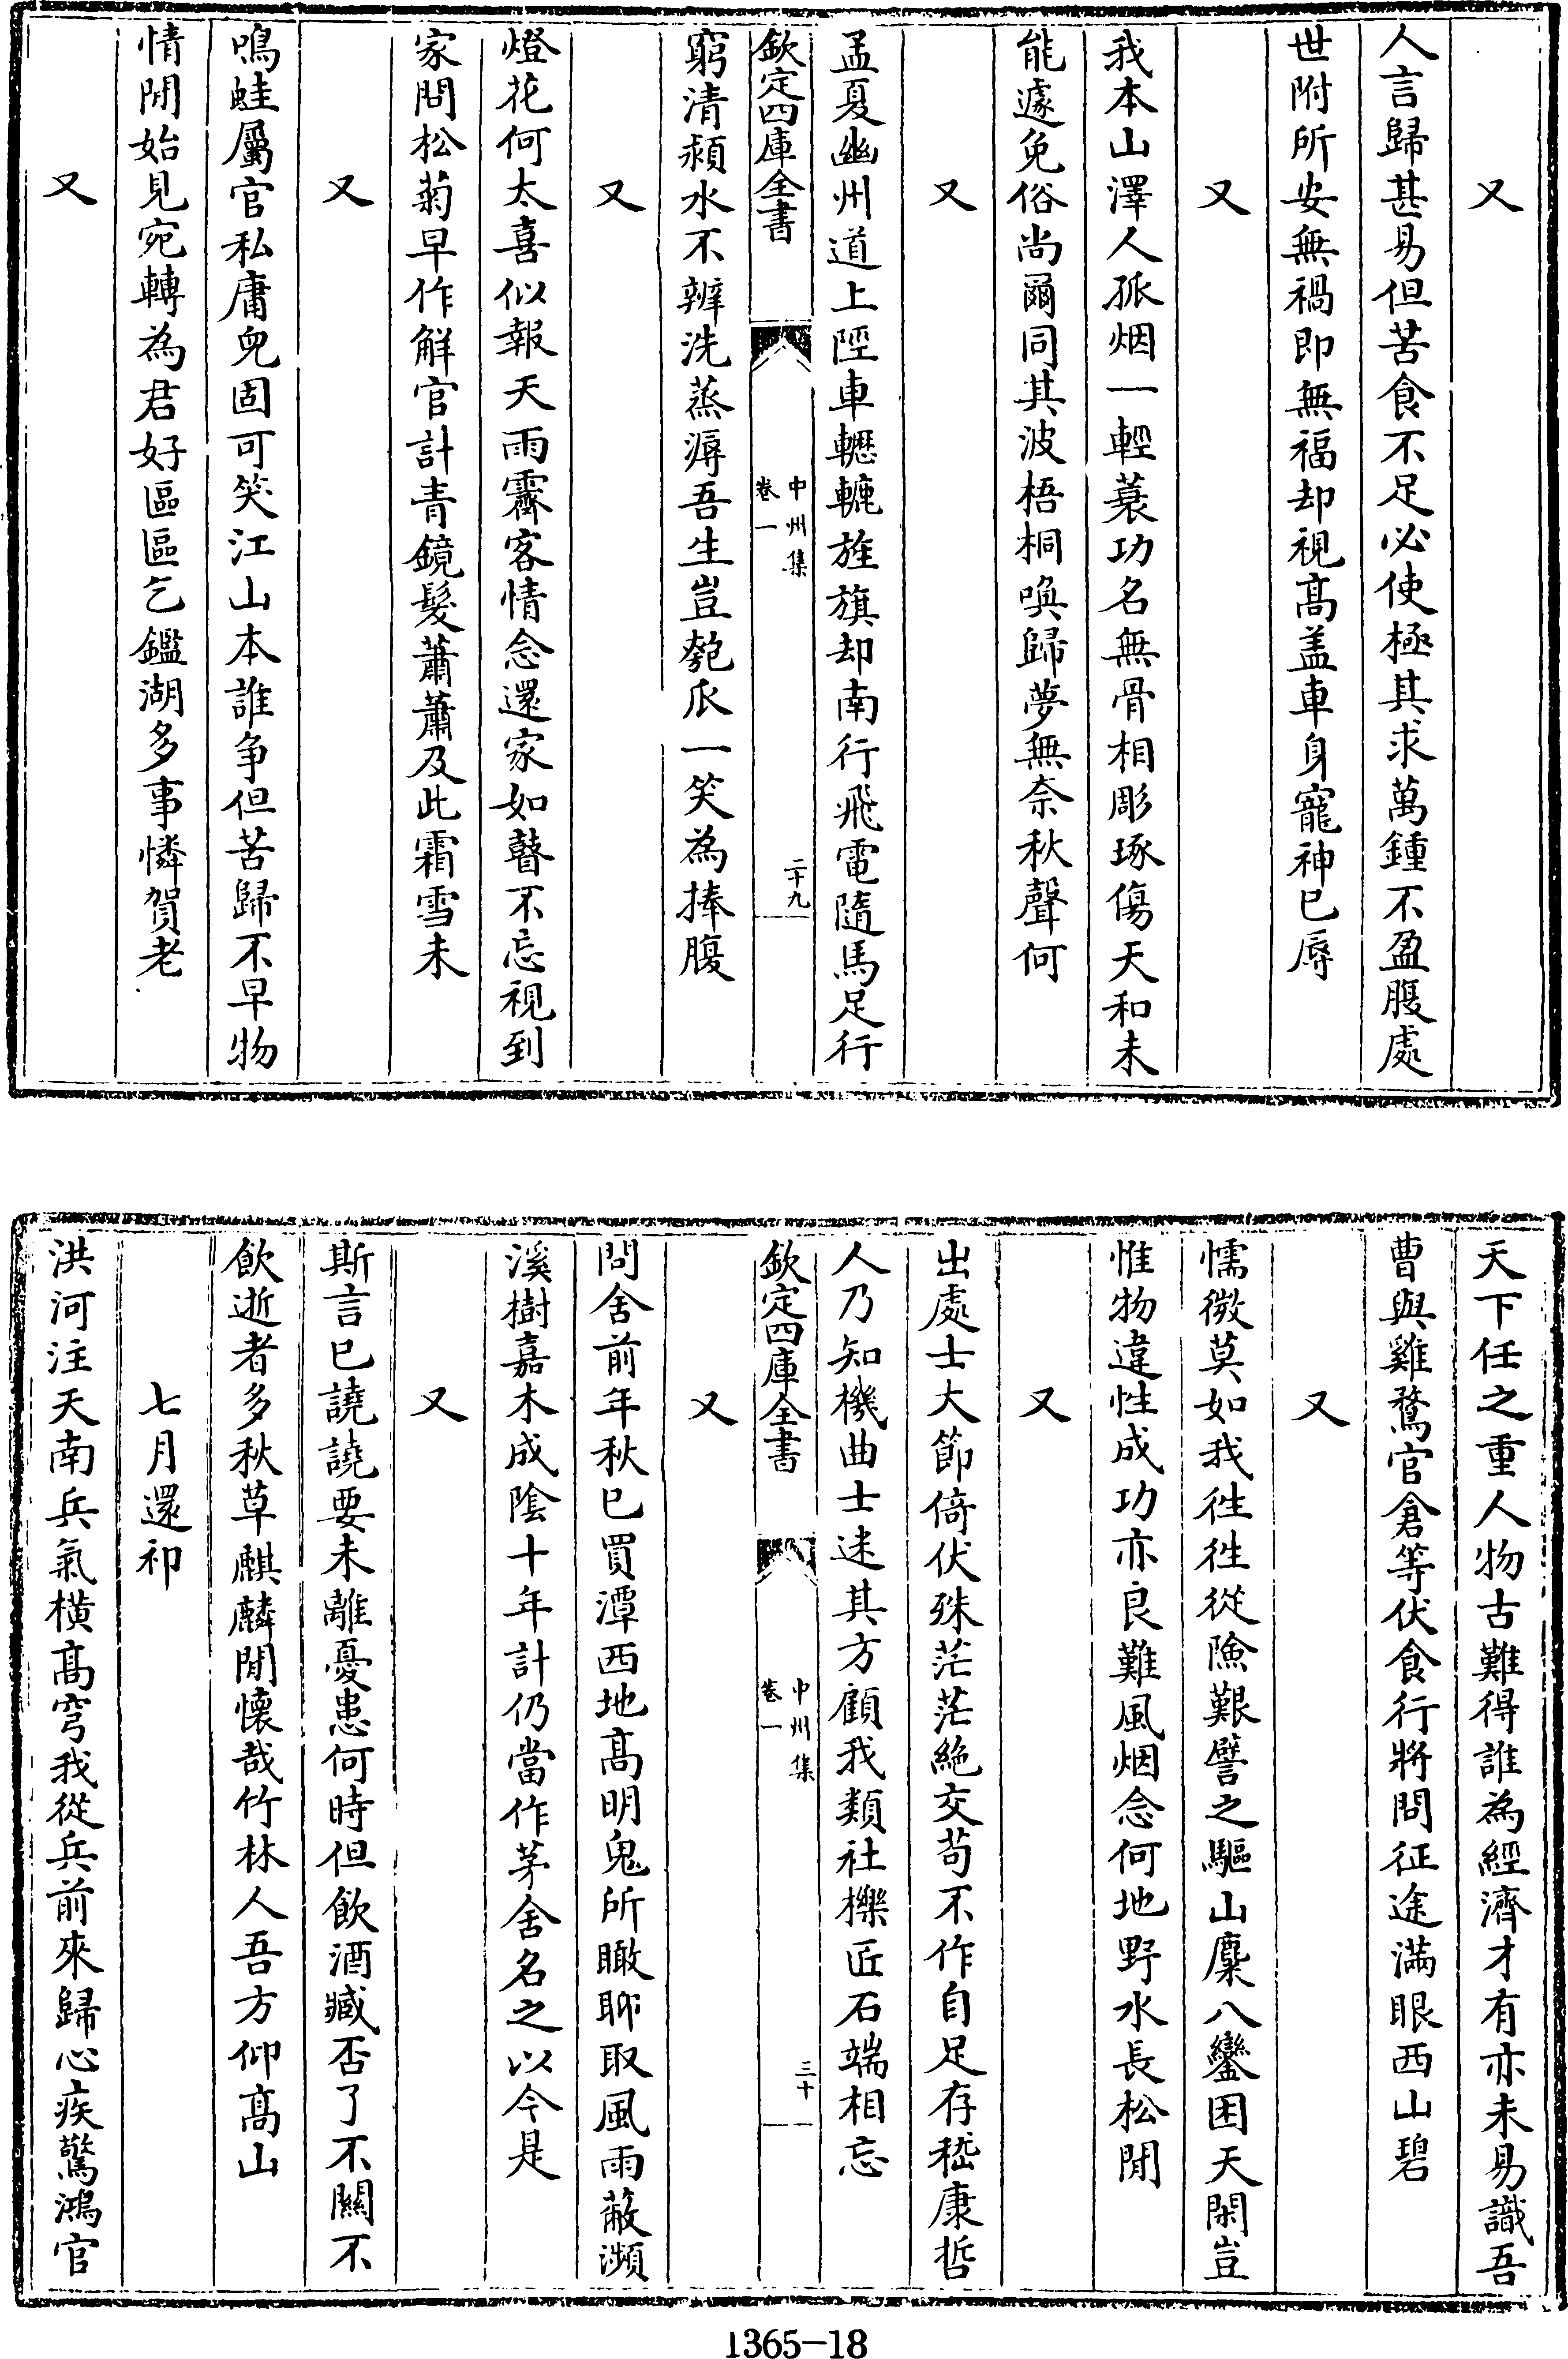 又
人言歸甚易但苦食不足必使極其求萬鍾不盈腹處
世附所安無禍即無福却視髙盖車身寵神已辱
又
我本山澤人孤烟一輕蓑功名無骨相彫琢傷天和未
能遽免俗尚爾同其波梧桐喚歸夢無奈秋聲何
又
孟夏幽州道上陘車轣轆旌旗却南行飛電隨馬足行
欽定四庫全書
中州集
卷一
二十九
窮清潁水不辨洗蒸溽吾生豈匏瓜一笑為捧腹
又
燈花何太喜似報天雨霽客情念還家如瞽不忘視到
家問松菊早作解官計青鏡髮蕭蕭及此霜雪未
又
鳴蛙屬官私庸兒固可笑江山本誰争但苦歸不早物
情閒始見宛轉為君好區區乞鑑湖多事憐賀老
又
天下任之重人物古難得誰為經濟才有亦未易識吾
曹與雞鶩官倉等伏食行將問征途滿眼西山碧
又
懦微莫如我徃徃從險艱譬之驅山麋八鑾困天閑豈
惟物違性成功亦良難風烟念何地野水長松閒
又
出處士大節倚伏殊茫茫絶交茍不作自足存嵇康哲
人乃知機曲士迷其方顧我類社櫟匠石端相忘
欽定四庫全書
中州集
卷一
三十
又
問舍前年秋已買潭西地髙明鬼所瞰聊取風雨蔽瀕
溪樹嘉木成陰十年計仍當作茅舍名之以今是
又
斯言已譊譊要未離憂患何時但飲酒臧否了不關不
飲逝者多秋草麒麟閒懐哉竹林人吾方仰髙山
七月還祁
洪河注天南兵氣横髙穹我從兵前來歸心疾驚鴻官
1365-18